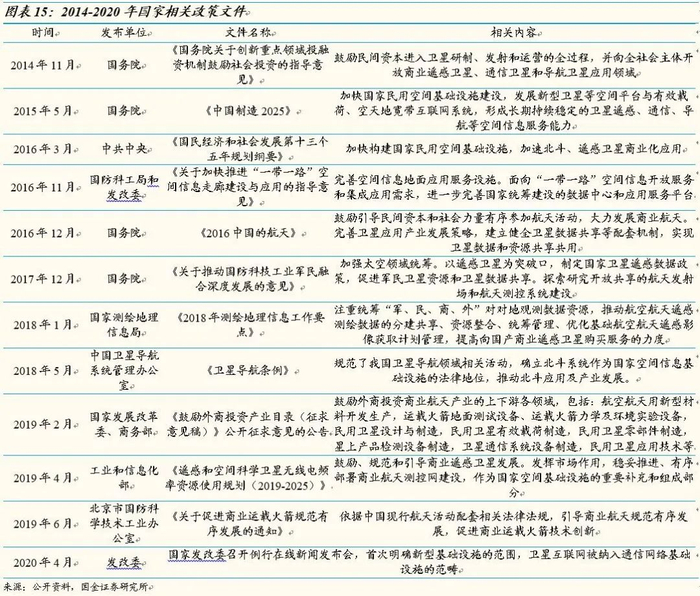 图表 15：2014-2020 年国家相关政策文件
时间 发布单位 文件名称 相关内容
2014 年 11 月 国务院 《国务院关于创新重点领域投融
资机制鼓励社会投资的指导意
见》 鼓励民间资本进入卫星研制、发射和运营的全过程，并向全社会主体开
放商业遥感卫星、通信卫星和导航卫星应用领域
2015 年 5 月 国务院 《中国制造 2025》 加快国家民用空间基础设施建设，发展新型卫星等空间平台与有效载
荷、空天地宽带互联网系统，形成长期持续稳定的卫星遥感、通信、导
航等空间信息服务能力
2016 年 3 月 中共中央 《国民经济和社会发展第十三个
五年规划纲要》 加快构建国家民用空间基础设施，加速北斗、遥感卫星商业化应用
2016 年 11 月 国防科工局和
发改委 《关于加快推进“一带一路”空
间信息走廊建设与应用的指导意
见》 完善空间信息地面应用服务设施。面向“一带一路”空间信息开放服务
和集成应用需求，进一步完善国家统筹建设的数据中心和应用服务平台
2016 年 12 月 国务院 《2016 中国的航天》 鼓励引导民间资本和社会力量有序参加航天活动，大力发展商业航天。
完善卫星应用产业发展策略，建立健全卫星数据共享等配套机制，实现
卫星数据和资源共享共用
2017 年 12 月 国务院 《关于推动国防科技工业军民融
合深度发展的意见》 加强太空领域统筹。以遥感卫星为突破口，制定国家卫星遥感数据政
策，促进军民卫星资源和卫星数据共享。探索研究开放共享的航天发射
场和航天测控系统建设
2018 年 1 月 国家测绘地理
信息局 《2018 年测绘地理信息工作要
点》 注重统筹“军、民、商、外”对对地观测数据资源，推动航空航天遥感
测绘数据的分建共享、资源整合、统筹管理、优化基础航空航天遥感影
像获取计划管理，提高向国产商业遥感卫星购买服务的力度
2018 年 5 月 中国卫星导航
系统管理办公
室 《卫星导航条例》 规范了我国卫星导航领域相关活动，确立北斗系统作为国家空间信息基
础设施的法律地位，推动北斗应用及产业发展。
2019 年 2 月 国家发展改革
委、商务部 《鼓励外商投资产业目录（征求
意见稿）》公开征求意见的公告 鼓励外商投资商业航天产业的上下游各领域，包括：航空航天用新型材
料开发生产，运载火箭地面测试设备、运载火箭力学及环境实验设备，
民用卫星设计与制造，民用卫星有效载荷制造，民用卫星零部件制造，
星上产品检测设备制造，卫星通信系统设备制造，民用卫星应用技术等
2019 年 4 月 工业和信息化
部 《遥感和空间科学卫星无线电频
率资源使用规划（2019-2025）》 鼓励、规范和引导商业遥感卫星发展。发挥市场作用，稳妥推进、有序
部署商业航天测控网建设，作为国家空间基础设施的重要补充和组成部
分
2019 年 6 月 北京市国防科
学技术工业办
公室 《关于促进商业运载火箭规范有
序发展的通知》 依据中国现行航天活动配套相关法律法规，引导商业航天规范有序发
展，促进商业运载火箭技术创新
2020 年 4 月 发改委 国家发改委召开例行在线新闻发布会，首次明确新型基础设施的范围，卫星互联网被纳入通信网络基础
设施的范畴
来源：公开资料，国金证券研究所